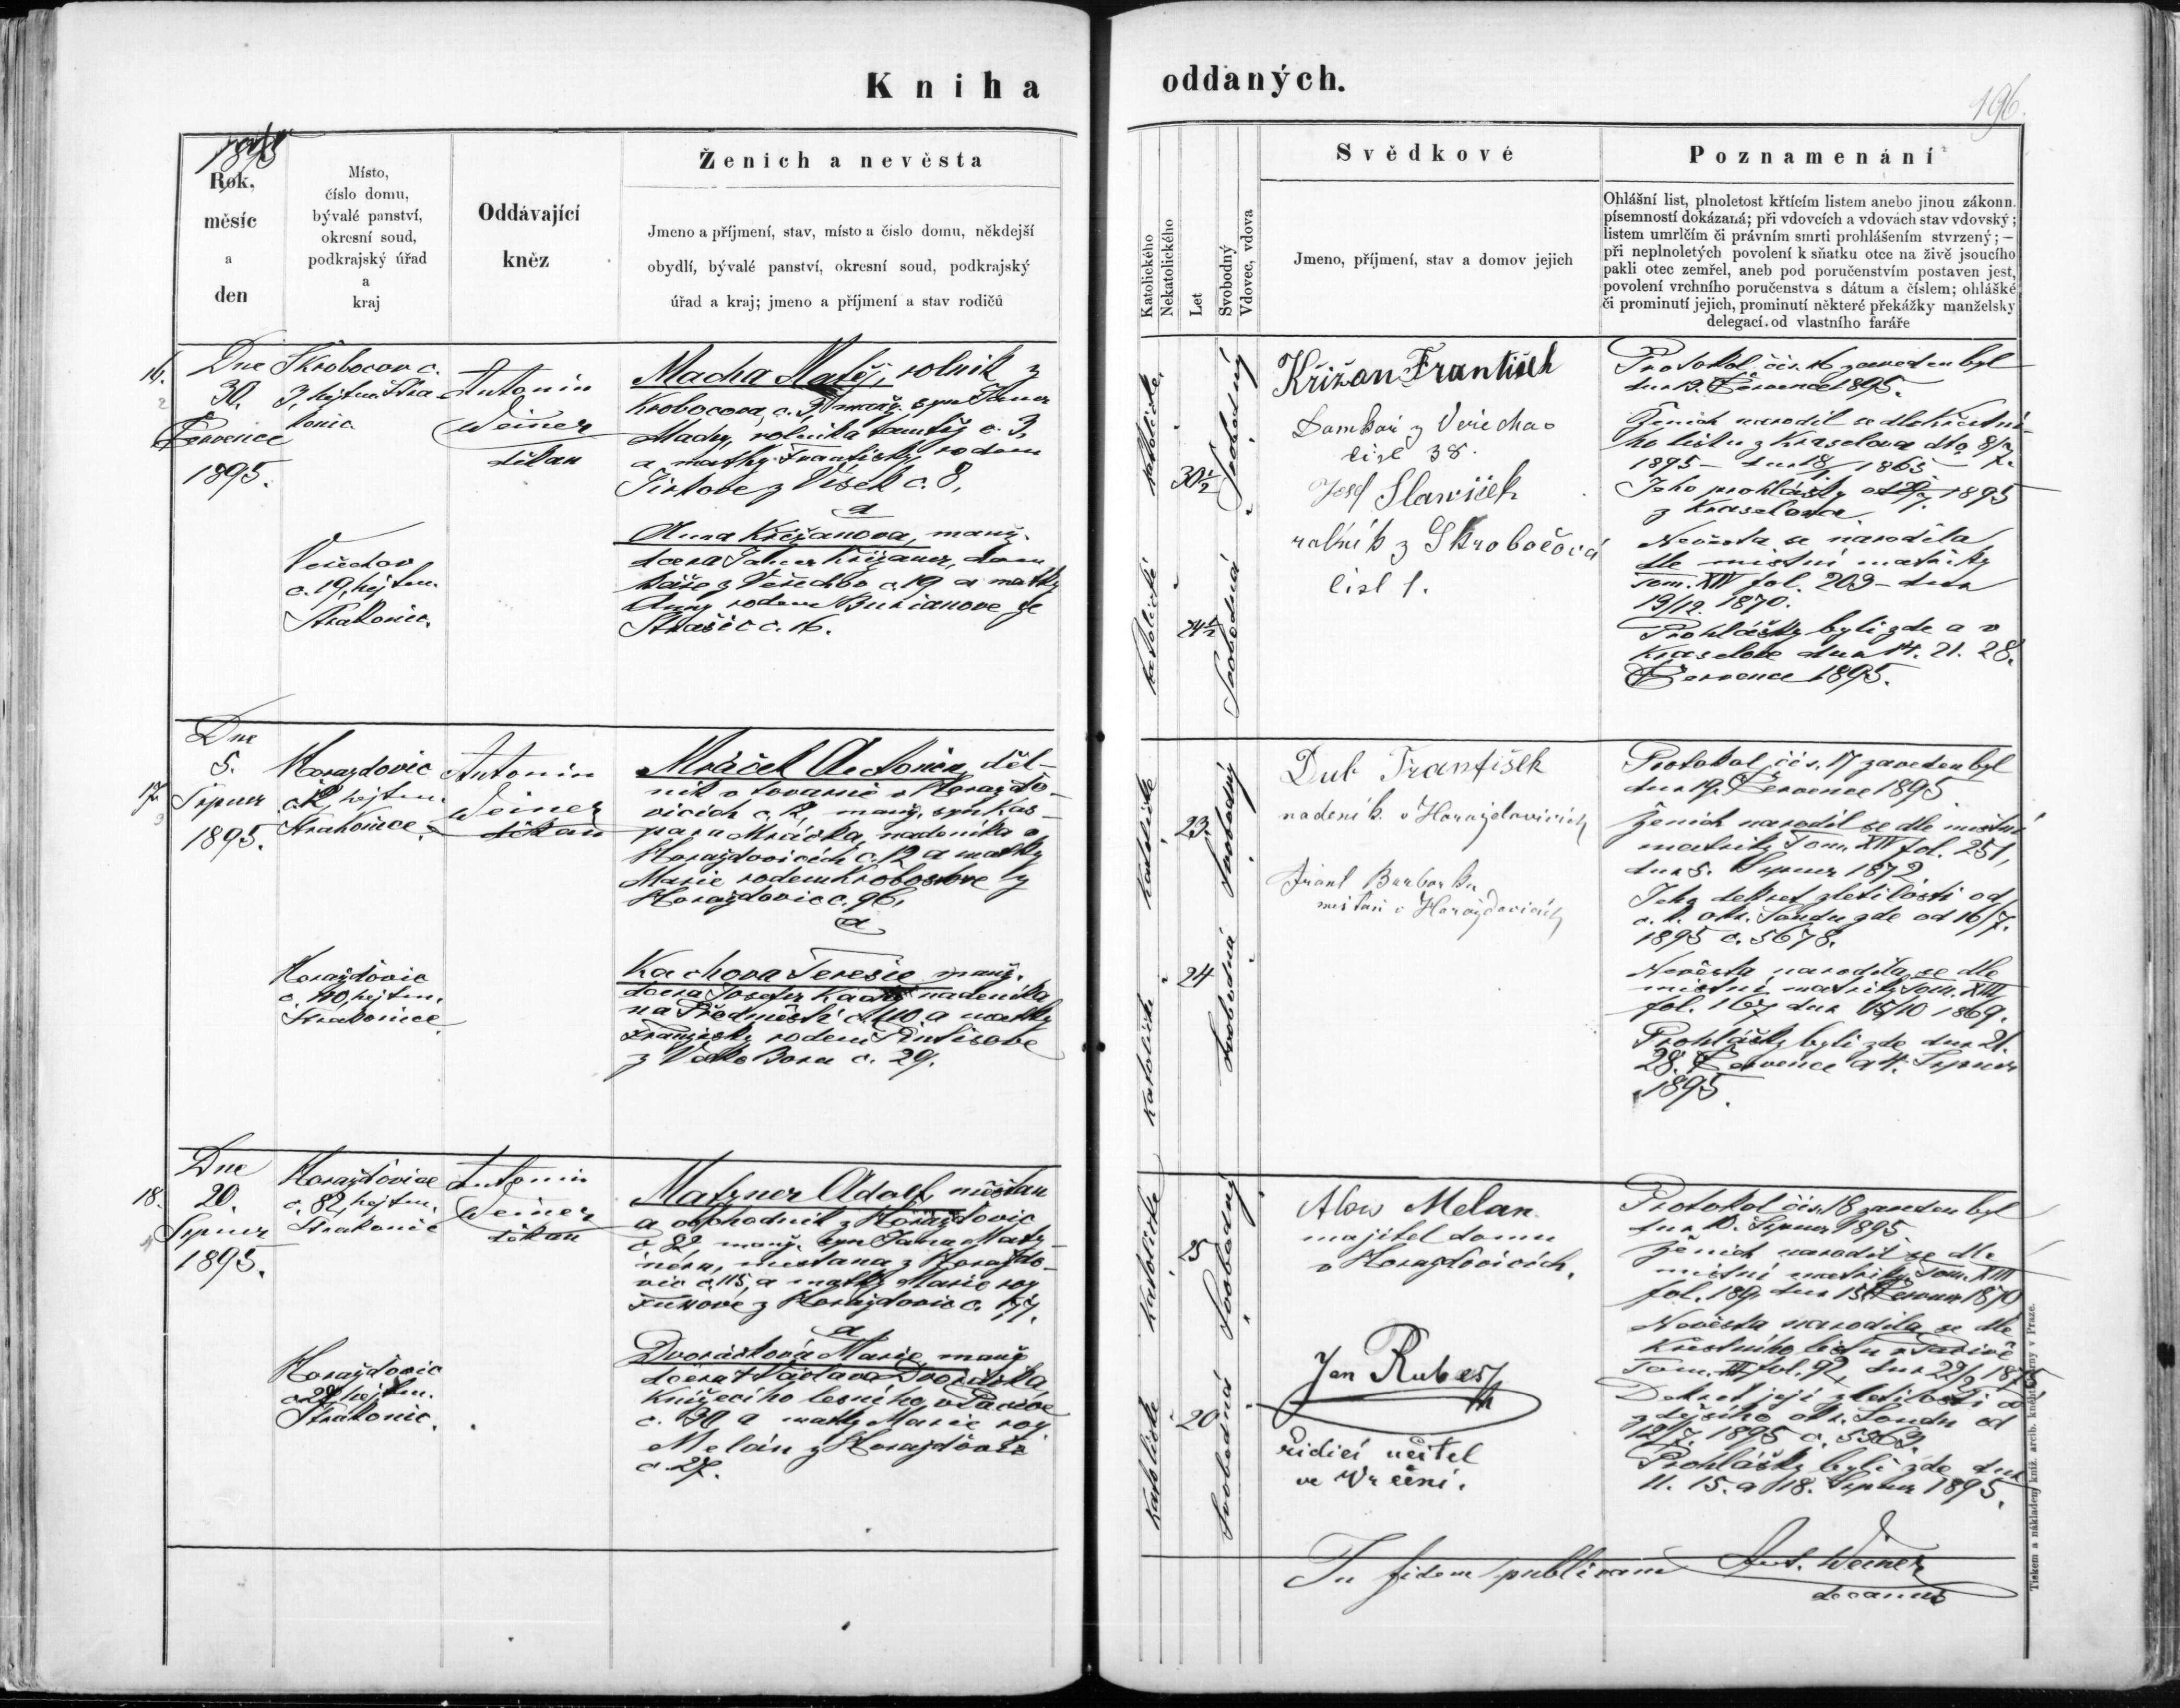 Kniha oddaných.
196.
1895
Rok,
měsíc
a
den
Místo,
číslo domu,
bývalé panství,
okresní soud,
podkrajský úřad
a
kraj
Oddávající
kněz
Ženich a nevěsta
Jmeno a příjmení, stav, místo a číslo domu, někdejší
obydlí, bývalé panství, okresní soud, podkrajský
úřad a kraj; jmeno a příjmení a stav rodičů
Katolického
Nekatolického
Let
Svobodný
Vdovec, vdova
Svědkové
Jmeno, příjmení, stav a domov jejich
Poznamenání
Ohlášní list, plnoletost křtícím listem anebo jinou zákonn.
písemností dokázaná; při vdovcích a vdovách stav vdovský;
listem umrlčím či právním smrti prohlášením stvrzený; —
při neplnoletých povolení k sňatku otce na živě jsoucího
pakli otec zemřel, aneb pod poručenstvím postaven jest,
povolení vrchního poručenstva s dátum a číslem; ohlášké
či prominutí jejich, prominutí některé překážky manželsky
delegací od vlastního faráře
16.
Dne
30.
Července
1895.
Skrobocov c.
3, hejtm. Stra-
konic.
Antonin
Weiner
děkan
Macha Matěj, rolnik z
Krobocova, c. 3, manž. syn Jana
Machy, rolnika tamtéž c. 3,
a matky Františky rodem
z Vísek c. 8,
a
Anna Křižanova, manž.
dcera Křižana, dom
káře z Veřechov c. 19 a matky
Anny rodem Burianove ze
Strašic c. 16.
Veřechov
c. 19, hejtm.
Strakonic.
katolické
30½
Svobodný
katolické
24½
Svobodná
Křižan František
Domkař z Veřechov
čisl 38.
Josef Slaviček
rolník z Skrobočová
čisl 1.
Protokol čis. 16 zaveden byl
dne 12. Července 1895.
Ženich narodil se dle křestní-
ho listu z Kraselova dto 8/7
1895 – dne 1865
Jeho prohlášky 1895
z Kraselova
Nevěsta se narodila
dle mistní matriky
Tom. XIV fol. 203 – dne
13/12. 1870.
Prohlášky byli zde a v
Kraselove dne 14. 21. 28.
Července 1895.
17.
Dne
5.
Srpna
1895.
Horazdovic
c. 12, hejtm.
Strakonice.
Antonin
Weiner
děkan
Mráček Antonin, děl-
nik v tovarně v Horazdo-
vicich c. 12, manž. syn Kas-
para Mráčka, nadenika v
Horaždovicích c. 12 a matky
Marie rodem
Horaždovic c. 96,
a
Kachova Teresie manž.
dcera Josefa nadenika
na Předměstí c. 110 a matky
Františky rodem
z Velko Bora c. 29.
Horaždovic
c. 110, hejtm.
Strakonice.
katolické
23.
Svobodný
katolické
24
Svobodná
Dub František
nadeník v Horaždovicich
Frant Barborka
mešťan v Horaždovicích
Protokol čis. 17 zaveden byl
dne 19. Července 1895
Ženich narodil se dle místní
matriky Tom. XIV fol. 251,
dne 5. Srpna 1872.
Jeho dekret zletilosti od
c. k. okr. Soudu zde od 16/7.
1895 c. 5678.
Nevěsta narodila se dle
místní matriky Tom. XIII
fol. 167 dne 15/10 1869.
Prohlášky byli zde dne 21.
28. Července a 4. Srpna
1895.
18.
Dne
20.
Srpna
1895.
Horaždovice
c. 82, hejtm.
Strakonic
Antonin
Weiner
děkan
Matzner Adolf, měštan
a obchodnik z Horaždovic
c 82 manž. syn Jana Matz-
nera, mestana z Horaždo-
vic c. 115, a matky Marie roz
z Horaždovic c. 177.
a
Dvořáková Marie manž
dcera + Václava Dvořáka
Knížecího lesního
c. 30 a matky Marie roz
Melán z Horaždovic
c. 27.
Horaždovic
c. 27 hejtm.
Strakonic.
katolické
25
Svobodný
katolické
20
Svobodná
Alois Melan
majitel domu
v Horaždovicích.
Jan Rubesch
řidicí učitel
ve Vrčeni.
Protokol čis. 18 zaveden byl
dne 10. Srpna 1895.
Ženich narodil se dle
mistní matriky Tom. XIII
fol. 189 dne 1870
Nevěsta narodila se dle
Křestního listu
Tom. fol. 92, dne
Dekret její zletilosti od
zdejšího okr. Soudu od
12/7. 1895 c. 5563.
Prohlášky byli zde dne
11. 15. a 18. Srpna 1895.
In fidem publicam Ant. Weiner
decanus
Tiskem a nákladem kníž. arcib. knihtiskárny v Praze.